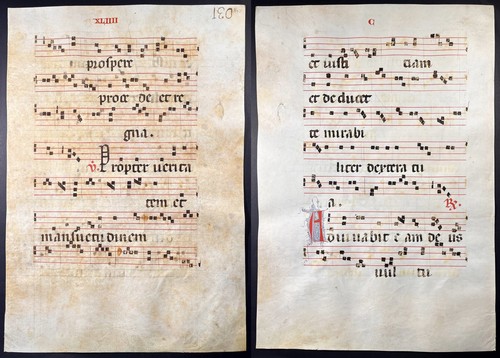 XLIIII
prospere
proce de et re
gna.
℣ Propter verita
tem et
mansuetu dinem
C
et iusti tiam
et de ducet
te mirabi
liter dextera tu
a. ℟
Adiuuabit e am de us
uul tu